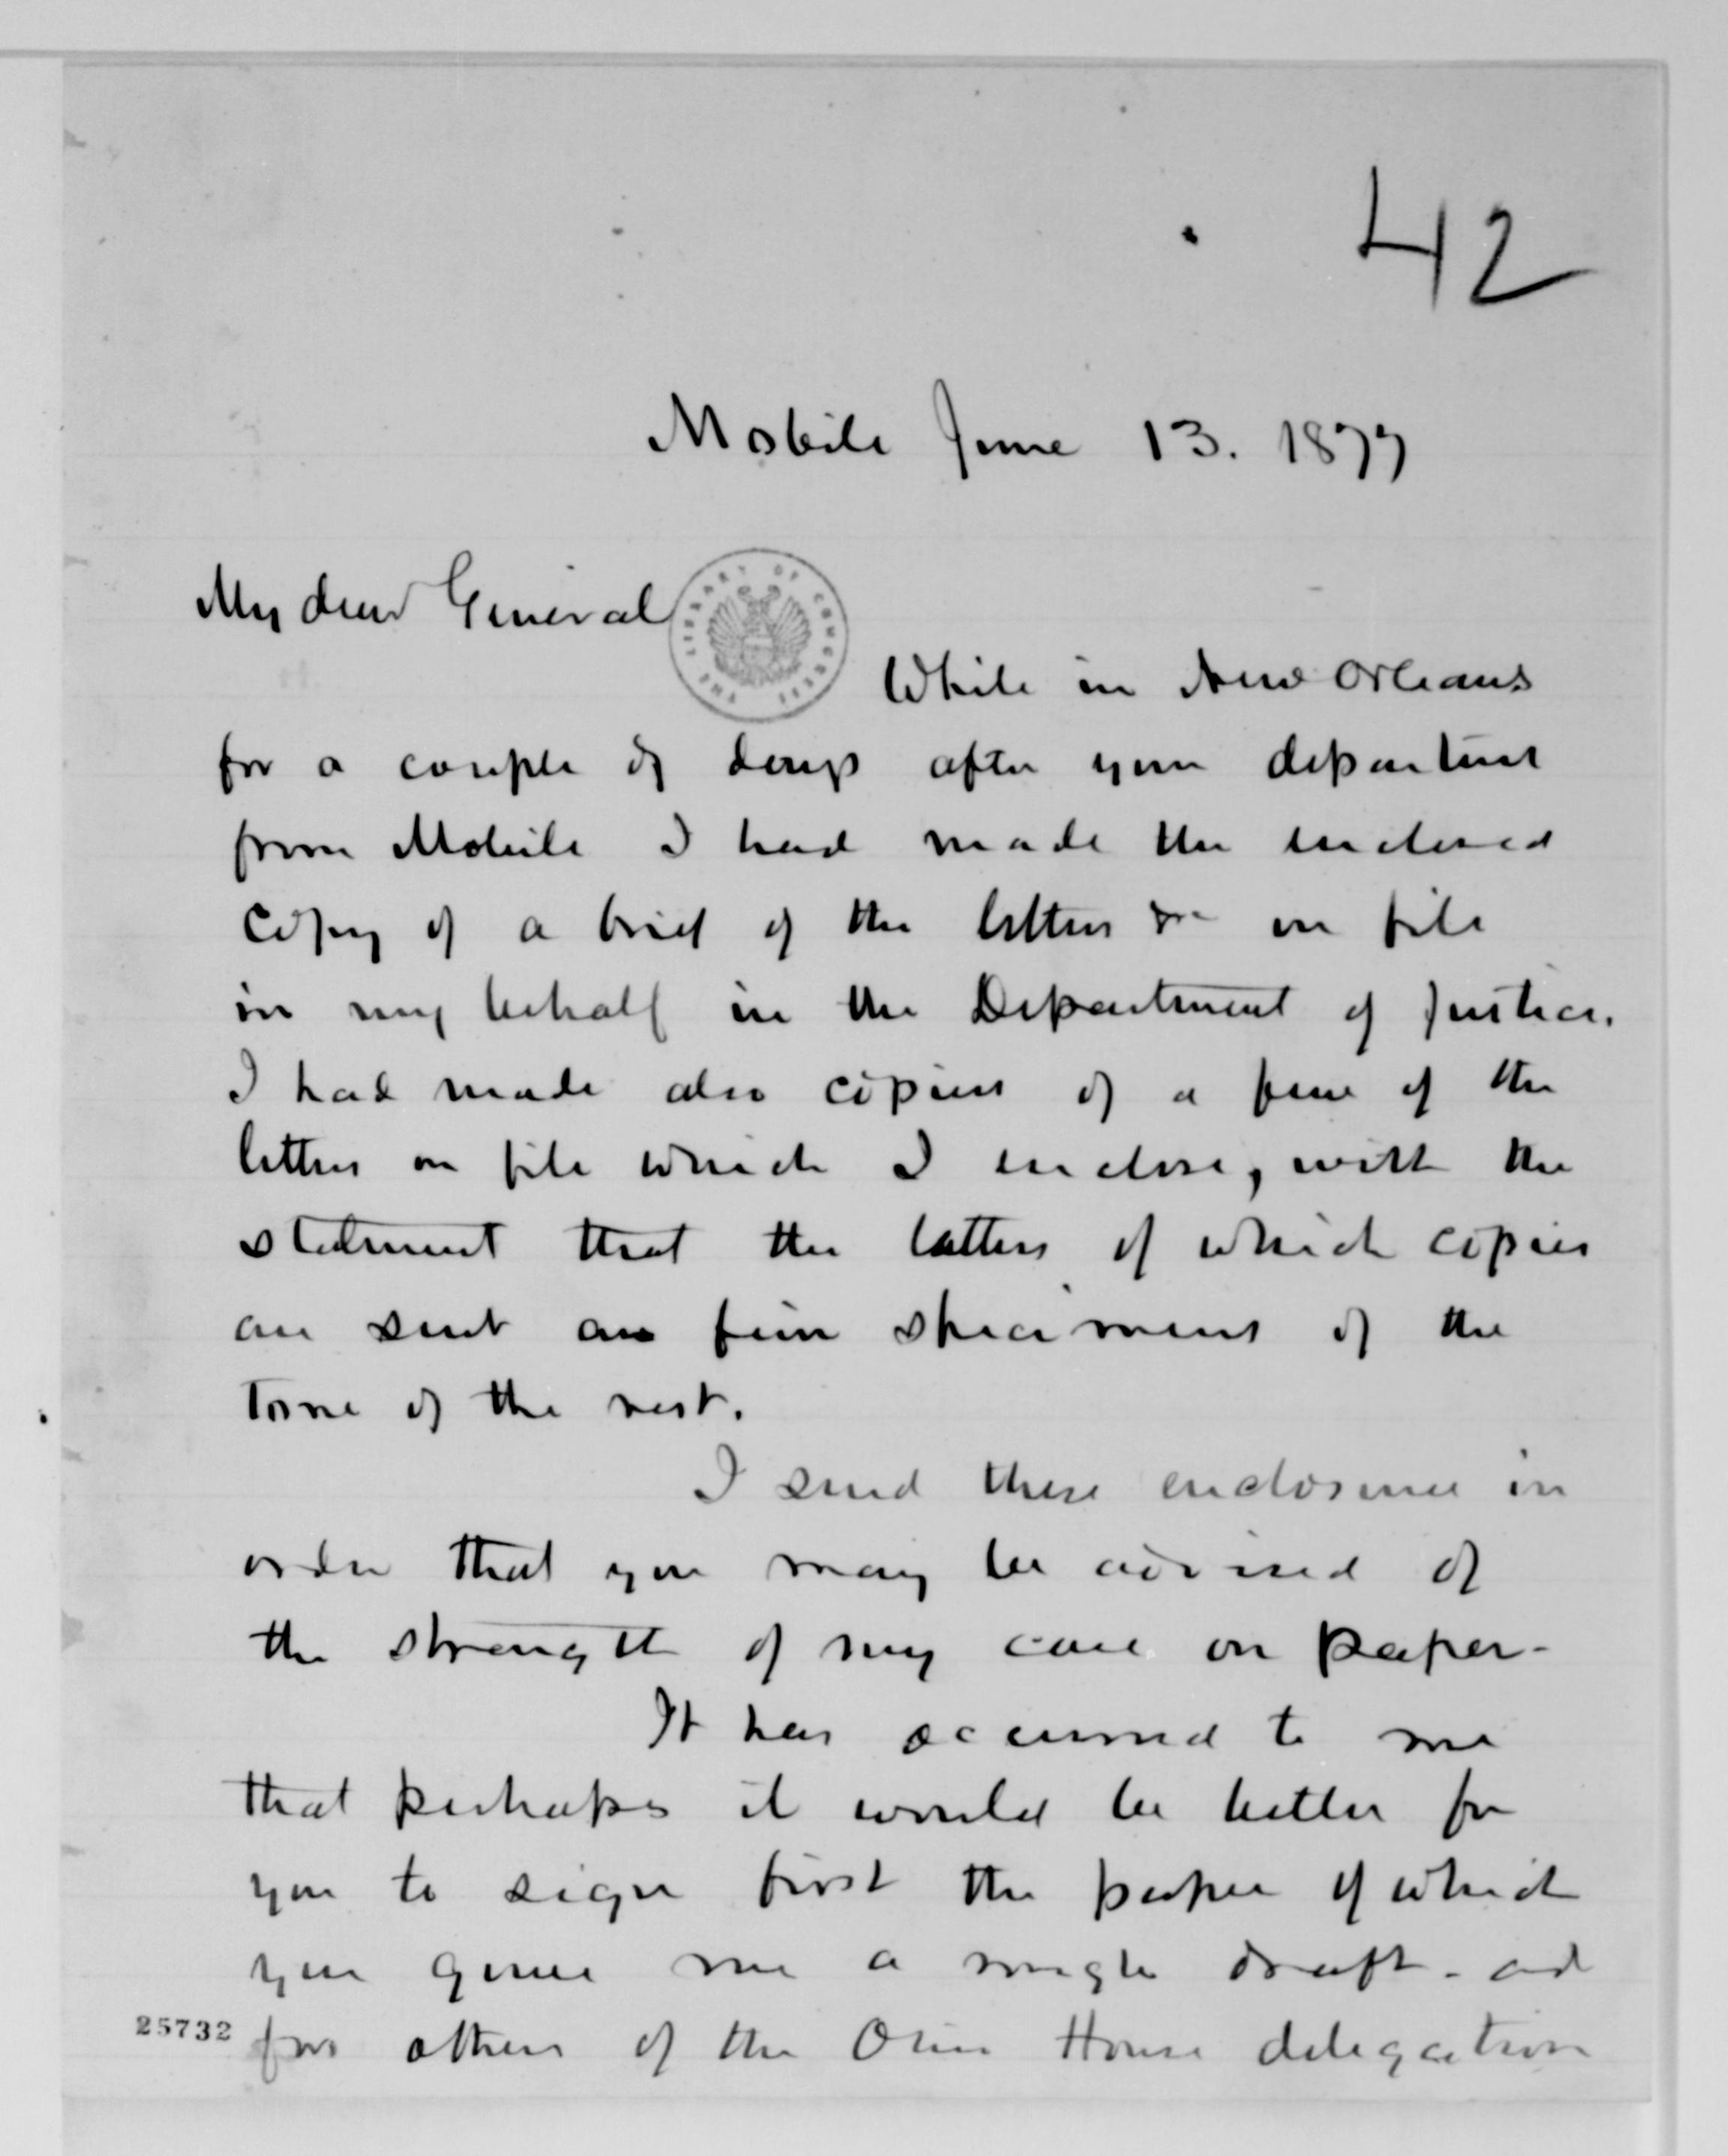 42
Mobile June 13. 1877
My dear General
THE LIBRARY OF CONGRESS
While in New Orleans
for a couple of days after your departure
from Mobile I had made the enclosed
copy of a brief of the letters on file
in my behalf in the Department of Justice.
I had made also copies of a few of the
letters on file which I enclose, with the
statement that the letters of which copies
are sent are fair specimens of the
tone of the rest.
I send these enclosures in
order that you may be advised of
the strength of my case on paper-
It has occurred to me
that perhaps it would be better for
you to sign first the paper of which
you gave me a rough draft - and
25732
for others of the Ohio House delegation